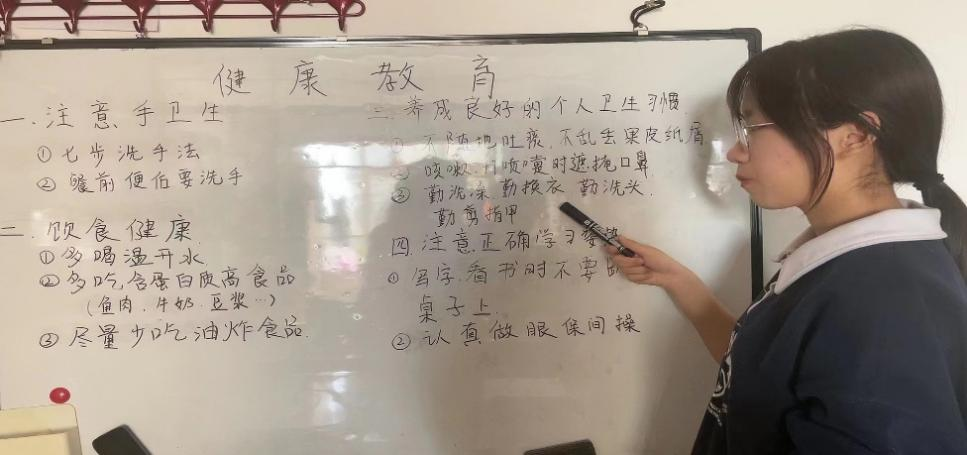 健康教育
一.注意手卫生
①七步洗手法
②餐前便后要洗手
二.饮食健康.
①多喝温开水
②多吃含蛋白质高食品
(鱼肉.牛奶.豆浆…)
③尽量少吃油炸食品.
三.养成良好的个人卫生习惯.
①不随地吐痰,不乱丢果皮纸屑
②咳嗽.打喷嚏时遮掩口鼻
③勤洗澡.勤换衣 勤洗头.
勤剪指甲
四.注意正确学习姿势
①写字.看书时不要
桌子上.
②认真做眼保间操